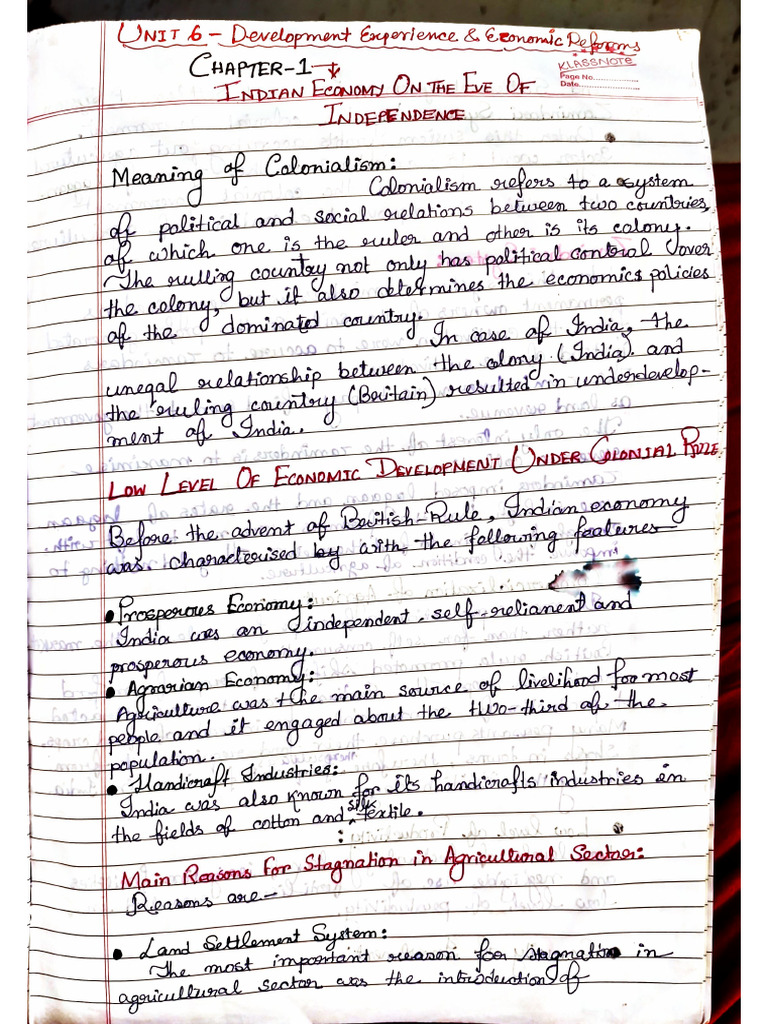 UNIT 6 - Development Experience & Economic Reforms
KLASSNOTE
Page No.
Date
CHAPTER-1
INDIAN ECONOMY ON THE EVE OF
INDEPENDENCE
Meaning of Colonialism:
Colonialism refers to a system
of political and social relations between two countries,
of which one is the ruler and other is its colony.
The rulling country not only has political control over
the colony, but it also determines the economics policies
of the dominated country.
In case of India, the
unegal relationship between the colony (India) and
the ruling country (Britain) resulted in underdevelop-
ment of India.
LOW LEVEL OF ECONOMIC DEVELOPMENT UNDER COLONIAL RULE
Before the advent of British-Rule, Indian economy
was characterised by with the following features
• Prosperous Economy:
India was an independent, self-relianent and
prosperous economy.
• Agrarian Economy:
Agriculture was the main source of livelihood for most
people and it engaged about the two-third of the
population.
• Handicraft Industries:
India was also known for its handicrafts industries in
the fields of cotton and silk textile.
Main Reasons For Stagnation in Agricultural Sector:
Reasons are -
• Land Settlement System:
The most important reason for stagnation in
agricultural sector was the introduction of